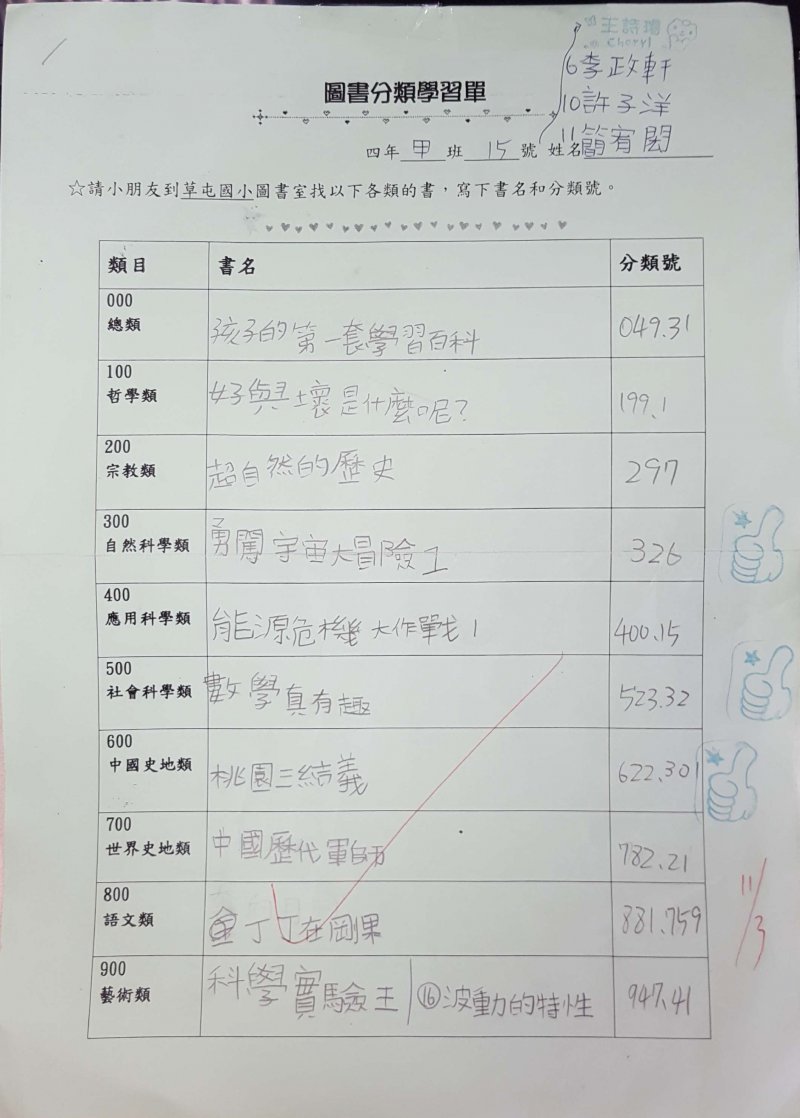 王詩瑨
Cheryl
6李政軒
10許子洋
11簡宥閎
圖書分類學習單
四年甲班 15 號 姓名
☆請小朋友到草屯國小圖書室找以下各類的書，寫下書名和分類號。
類目 書名 分類號
000
總類 孩子的第一套學習百科 049.31
100
哲學類 好與壞是什麼呢? 199.1
200
宗教類 超自然的歷史 297
300
自然科學類 勇闖宇宙大冒險1 326
400
應用科學類 能源危機大作戰1 400.15
500
社會科學類 數學真有趣 523.32
600
中國史地類 桃園三結義 622.301
700
世界史地類 中國歷代軍師 782.21
800
語文類 丁丁在剛果 881.759
900
藝術類 科學實驗王 ⑯波動的特性 947.41
11/3